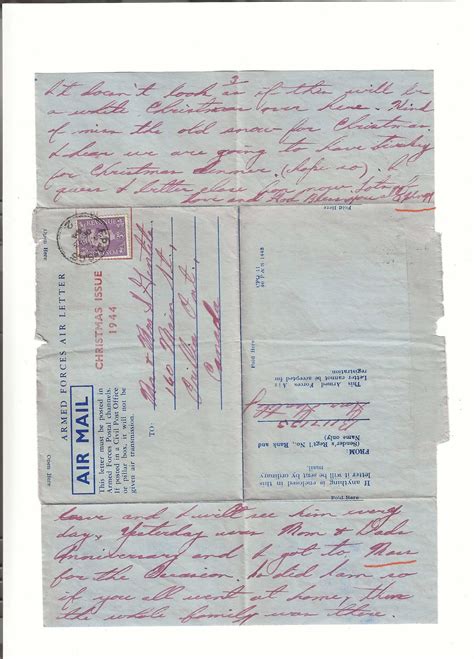 3
It doesn't look as if there will be
a white Christmas over here. Kind
of miss the old snow for Christmas.
I hear we are going to have turkey
for Christmas dinner. (hope so). I
guess I better close for now.
Love and God Bless you all
Fold Here
Open Here
ARMED FORCES AIR LETTER
CHRISTMAS ISSUE
1944
AIR MAIL
This letter must be posted in
Armed Forces Postal channels.
If posted in a Civil Post Office
or pillar box, it will not be
given air transmission.
TO:
Mr & Mrs
160 Main St.,
Ont.,
Canada
Open Here
Fold Here
This Armed Forces Air
Letter cannot be accepted for
registration
FROM:
(Sender's Reg't'l No., Rank and
Name only)
If anything is enclosed in this
letter it will be sent by ordinary
mail
Fold Here
and I will see him every
day, Yesterday was Mom & Dads
Anniversary and I got to Mass
for the Occasion. So did Sam so
if you all went at home, then
the whole family was there.